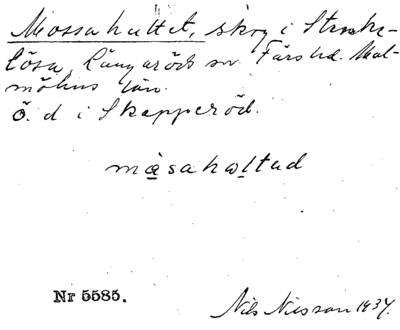 Mossahultet, skog i Starrka-
lösa, Långaröds sn. Färs hd. Mal-
möhus län.
Ö. d i Skepperöd.
måsahøltad
Nr 5585.
Nils Nilsson 1934.